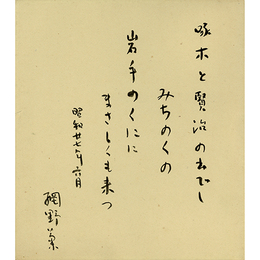 啄木と賢治の出でし
みちのくの
岩手のくにに
まさしくも来つ
昭和廿七年六月
網野菊